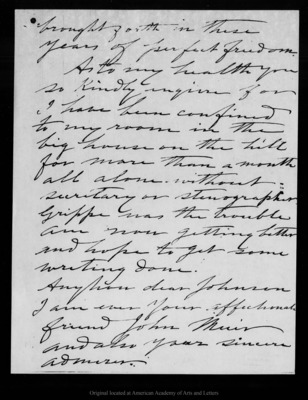 brought forth in these
years of perfect freedom.
As to my health you
so kindly enquire for
I have been confined
to my room in the
big house on the hill
for more than a month
all alone without
secretary or stenographer.
Grippe was the trouble
am now getting better
and hope to get some
writing done.
Anyhow dear Johnson
I am ever Your affectionate
friend John Muir
and also your sincere
admirer.
Original located at American Academy of Arts and Letters